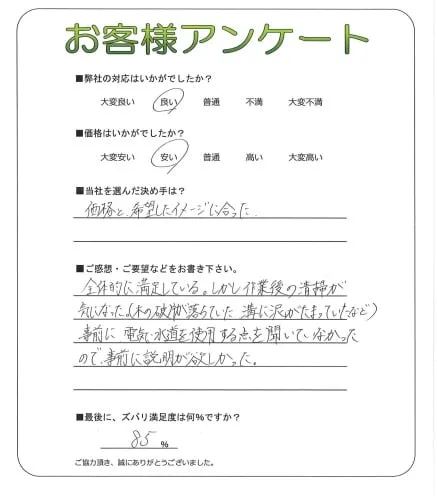 お客様アンケート
■弊社の対応はいかがでしたか？
大変良い 良い 普通 不満 大変不満
■価格はいかがでしたか？
大変安い 安い 普通 高い 大変高い
■当社を選んだ決め手は？
価格と、希望したイメージに合った
■ご感想・ご要望などをお書き下さい。
全体的に満足している。しかし作業後の清掃が
気になった。(木の破片が落ちていた 溝に泥がたまっていたなど)
事前に電気・水道を使用する点を聞いていなかった
ので、事前に説明が欲しかった。
■最後に、ズバリ満足度は何％ですか？
85 %
ご協力頂き、誠にありがとうございました。